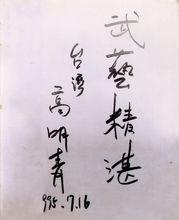 武藝精湛
台湾
高明青
995.7.16